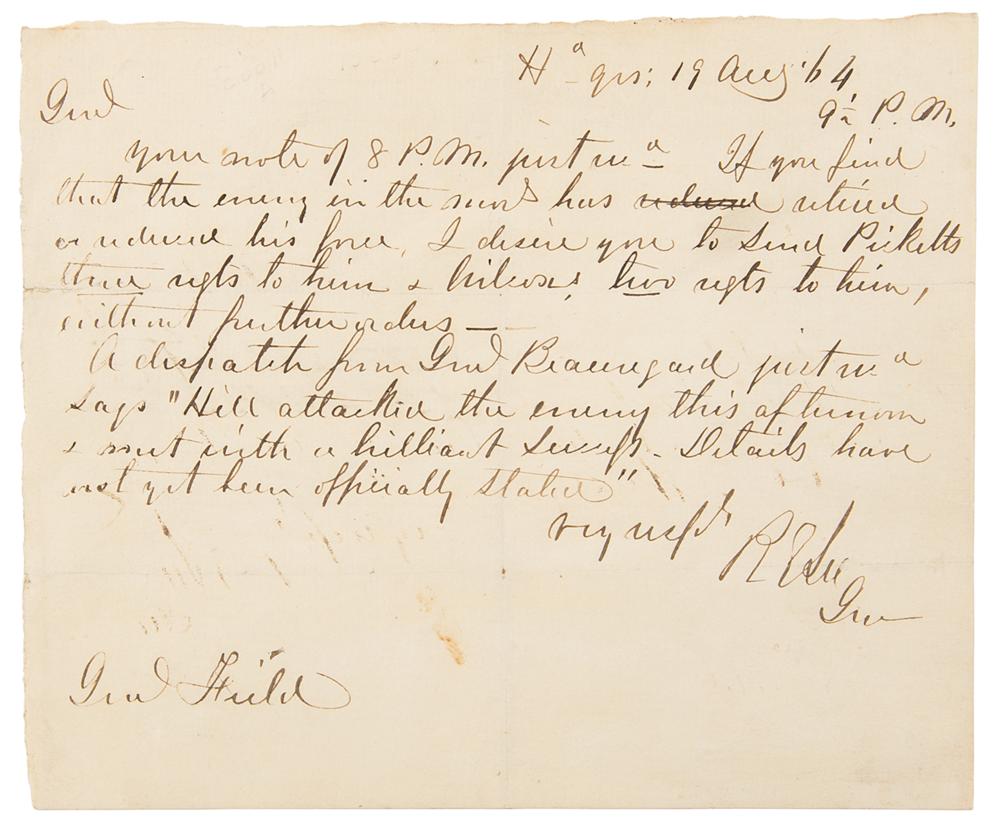 Hd qrs; 19 Aug '64
9½ P.M.
Genl
your note of 8 P.M. just recd If you find
that the enemy in the morng has reduced retired
or reduced his force, I desire you to send Picketts
three regts to him & Wilcoxs, two regts to him,
without further orders —
A dispatch from Genl Beauregard just recd
says "Hill attacked the enemy this afternoon
& met with a brilliant success. Details have
not yet been officially stated"
Very respy
R E Lee
Genl
Genl Field